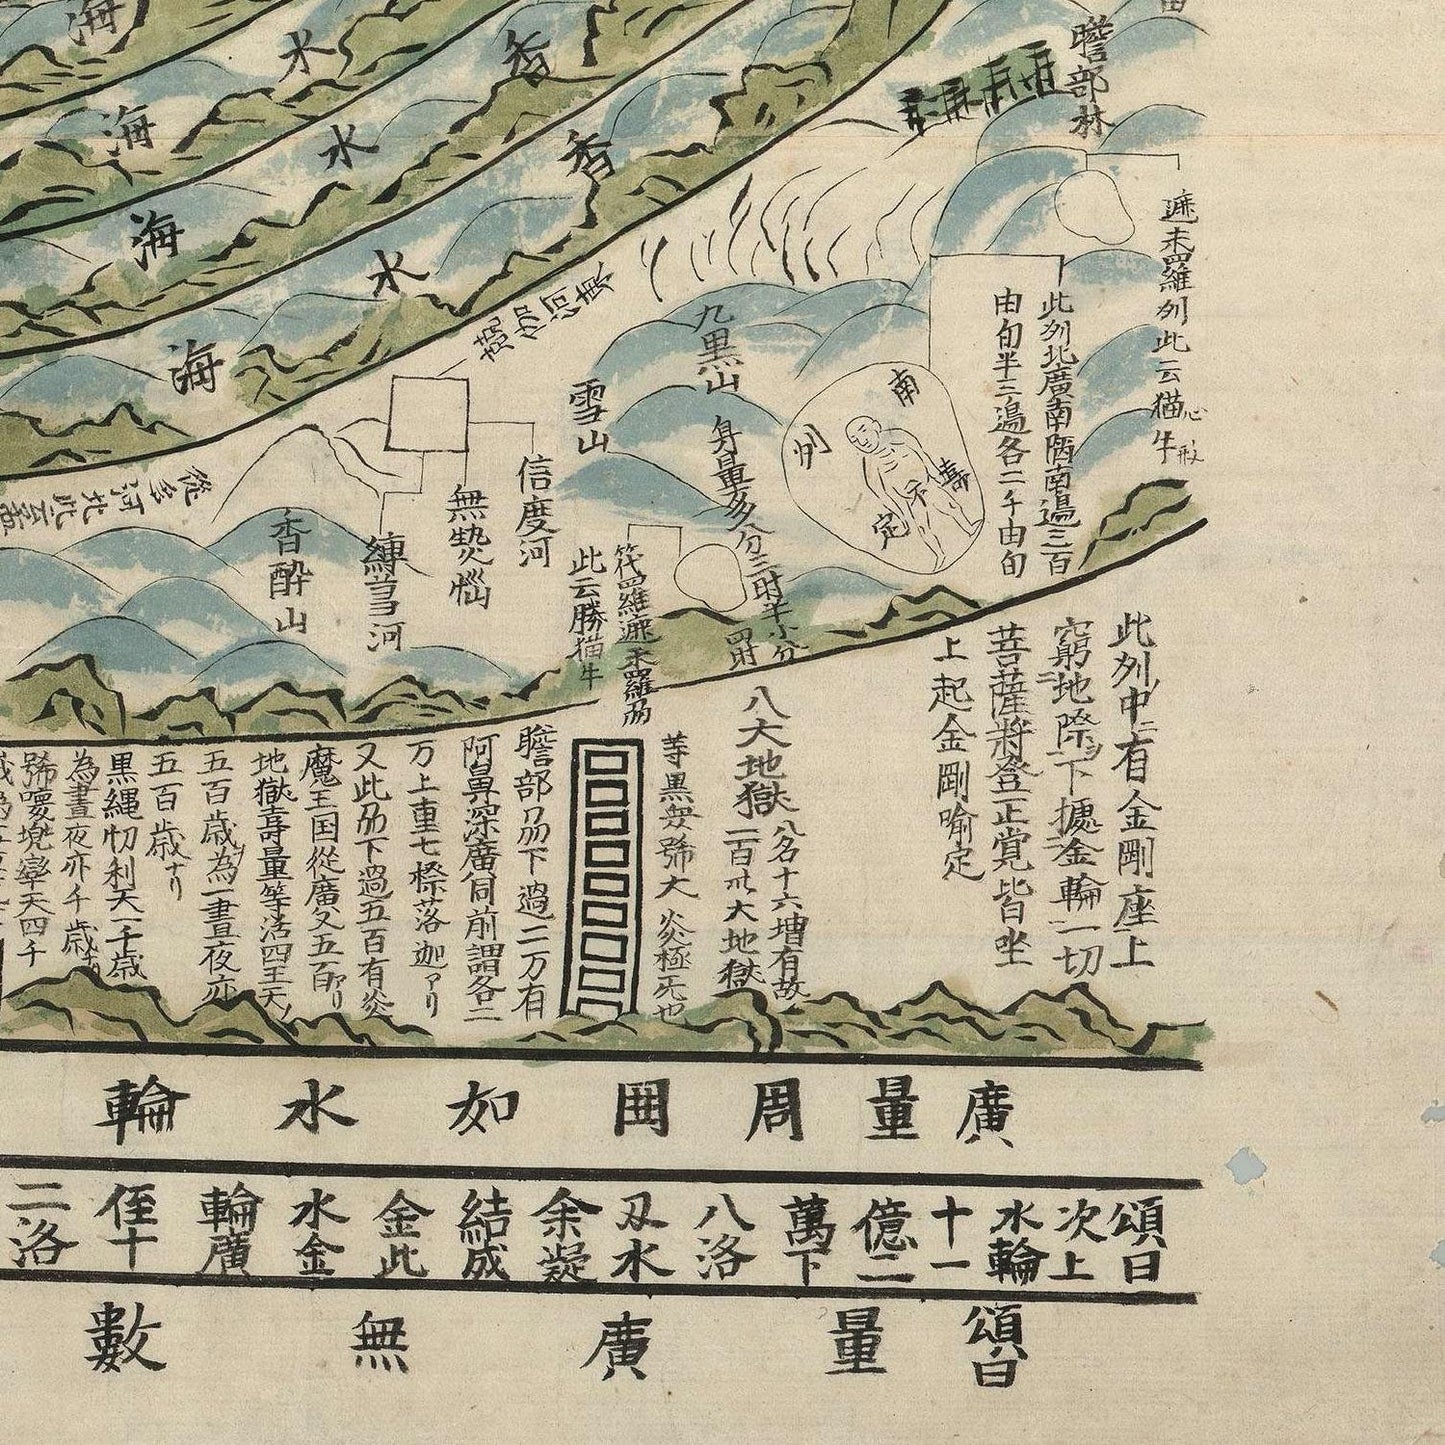 瞻部林
遮末羅列此云猫牛
心形
此列北廣南陿南邉三百
由旬半三邉各二千由旬
南
列
壽
不
定
九黒山
雪山
信度河
無𤍠悩
縛芻河
香酔山
香
水
海
香
水
海
水
海
水
海
筏羅遮末羅列
此云勝猫牛
此列中ニ有金剛座上
窮地際下㨿金輪一切
菩薩将登正覚皆坐
上起金剛喻定
八大地獄
八名十六増有故
二百卅大地獄
等黒衆號大炎極无也
瞻部列下過二万有
阿鼻深廣同前謂各二
万上重七㮈落迦アリ
又此列下過五百有炎
魔王国従廣父五百アリ
地獄壽量等活四王天ノ
五百歳為一晝夜亦
五百歳ナリ
黒縄忉利天一千歳
為晝夜亦千歳ナリ
廣量周圍如水輪
頌曰
次上
水輪
十一
億二
萬下
八洛
刄水
余凝
結成
金此
水金
輪廣
侄十
二洛
頌曰
量廣無數